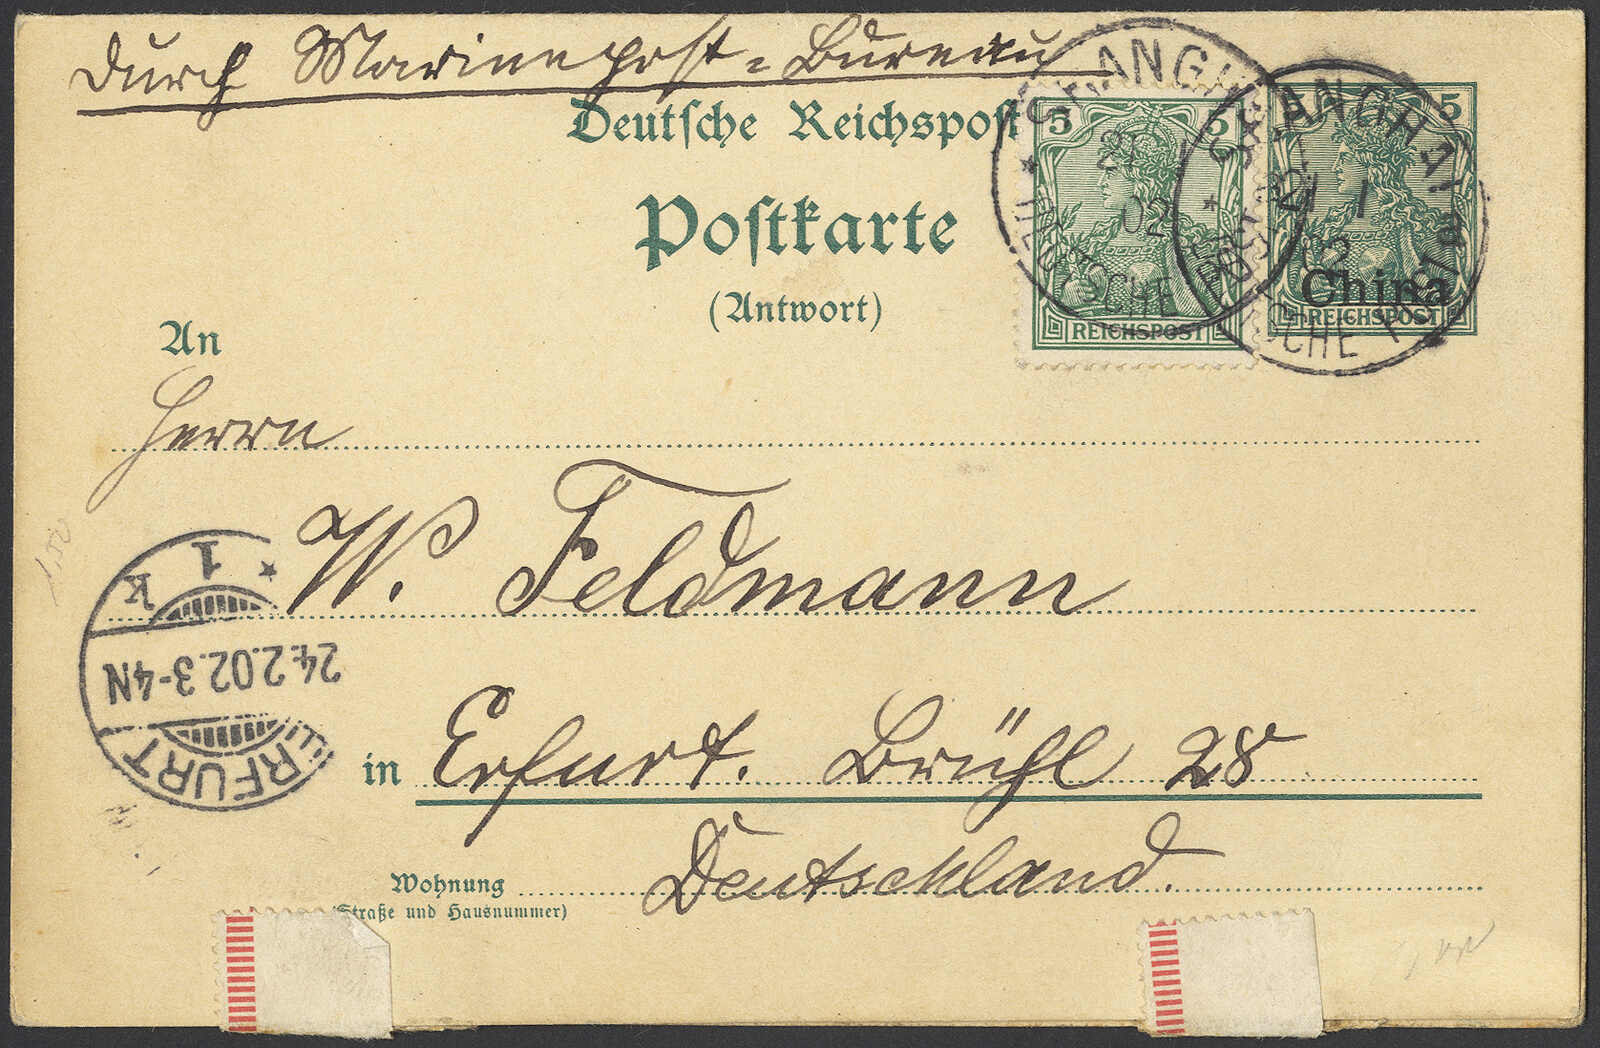 Durch Marinepost-Bureau
Deutsche Reichspost
Postkarte
(Antwort)
An
Herrn
W. Feldmann
in Erfurt. Brühl 28
Deutschland.
Wohnung
(Straße und Hausnummer)
5 5
REICHSPOST
5
China
REICHSPOST
SHANGHAI
DEUTSCHE POST
02
SHANGHAI
DEUTSCHE POST
02
ERFURT
24.2.02.3-4N
* 1 k